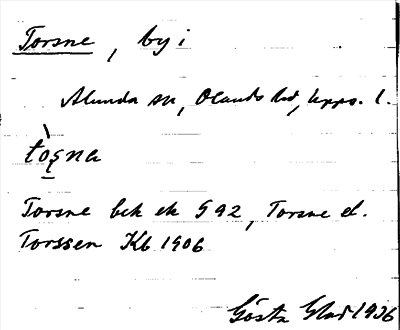 Torsne, by i
Alunda sn, Olands hd, Upps. l.
tòșna
Torsne bek ek § 92, Torsne el.
Torssen Kb 1906
Gösta Glad 1936